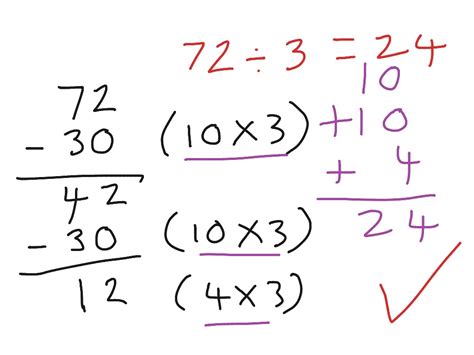 72 ÷ 3 = 24
72
- 30 (10 x 3)
42
- 30 (10 x 3)
12 (4 x 3)
10
+ 10
+ 4
24